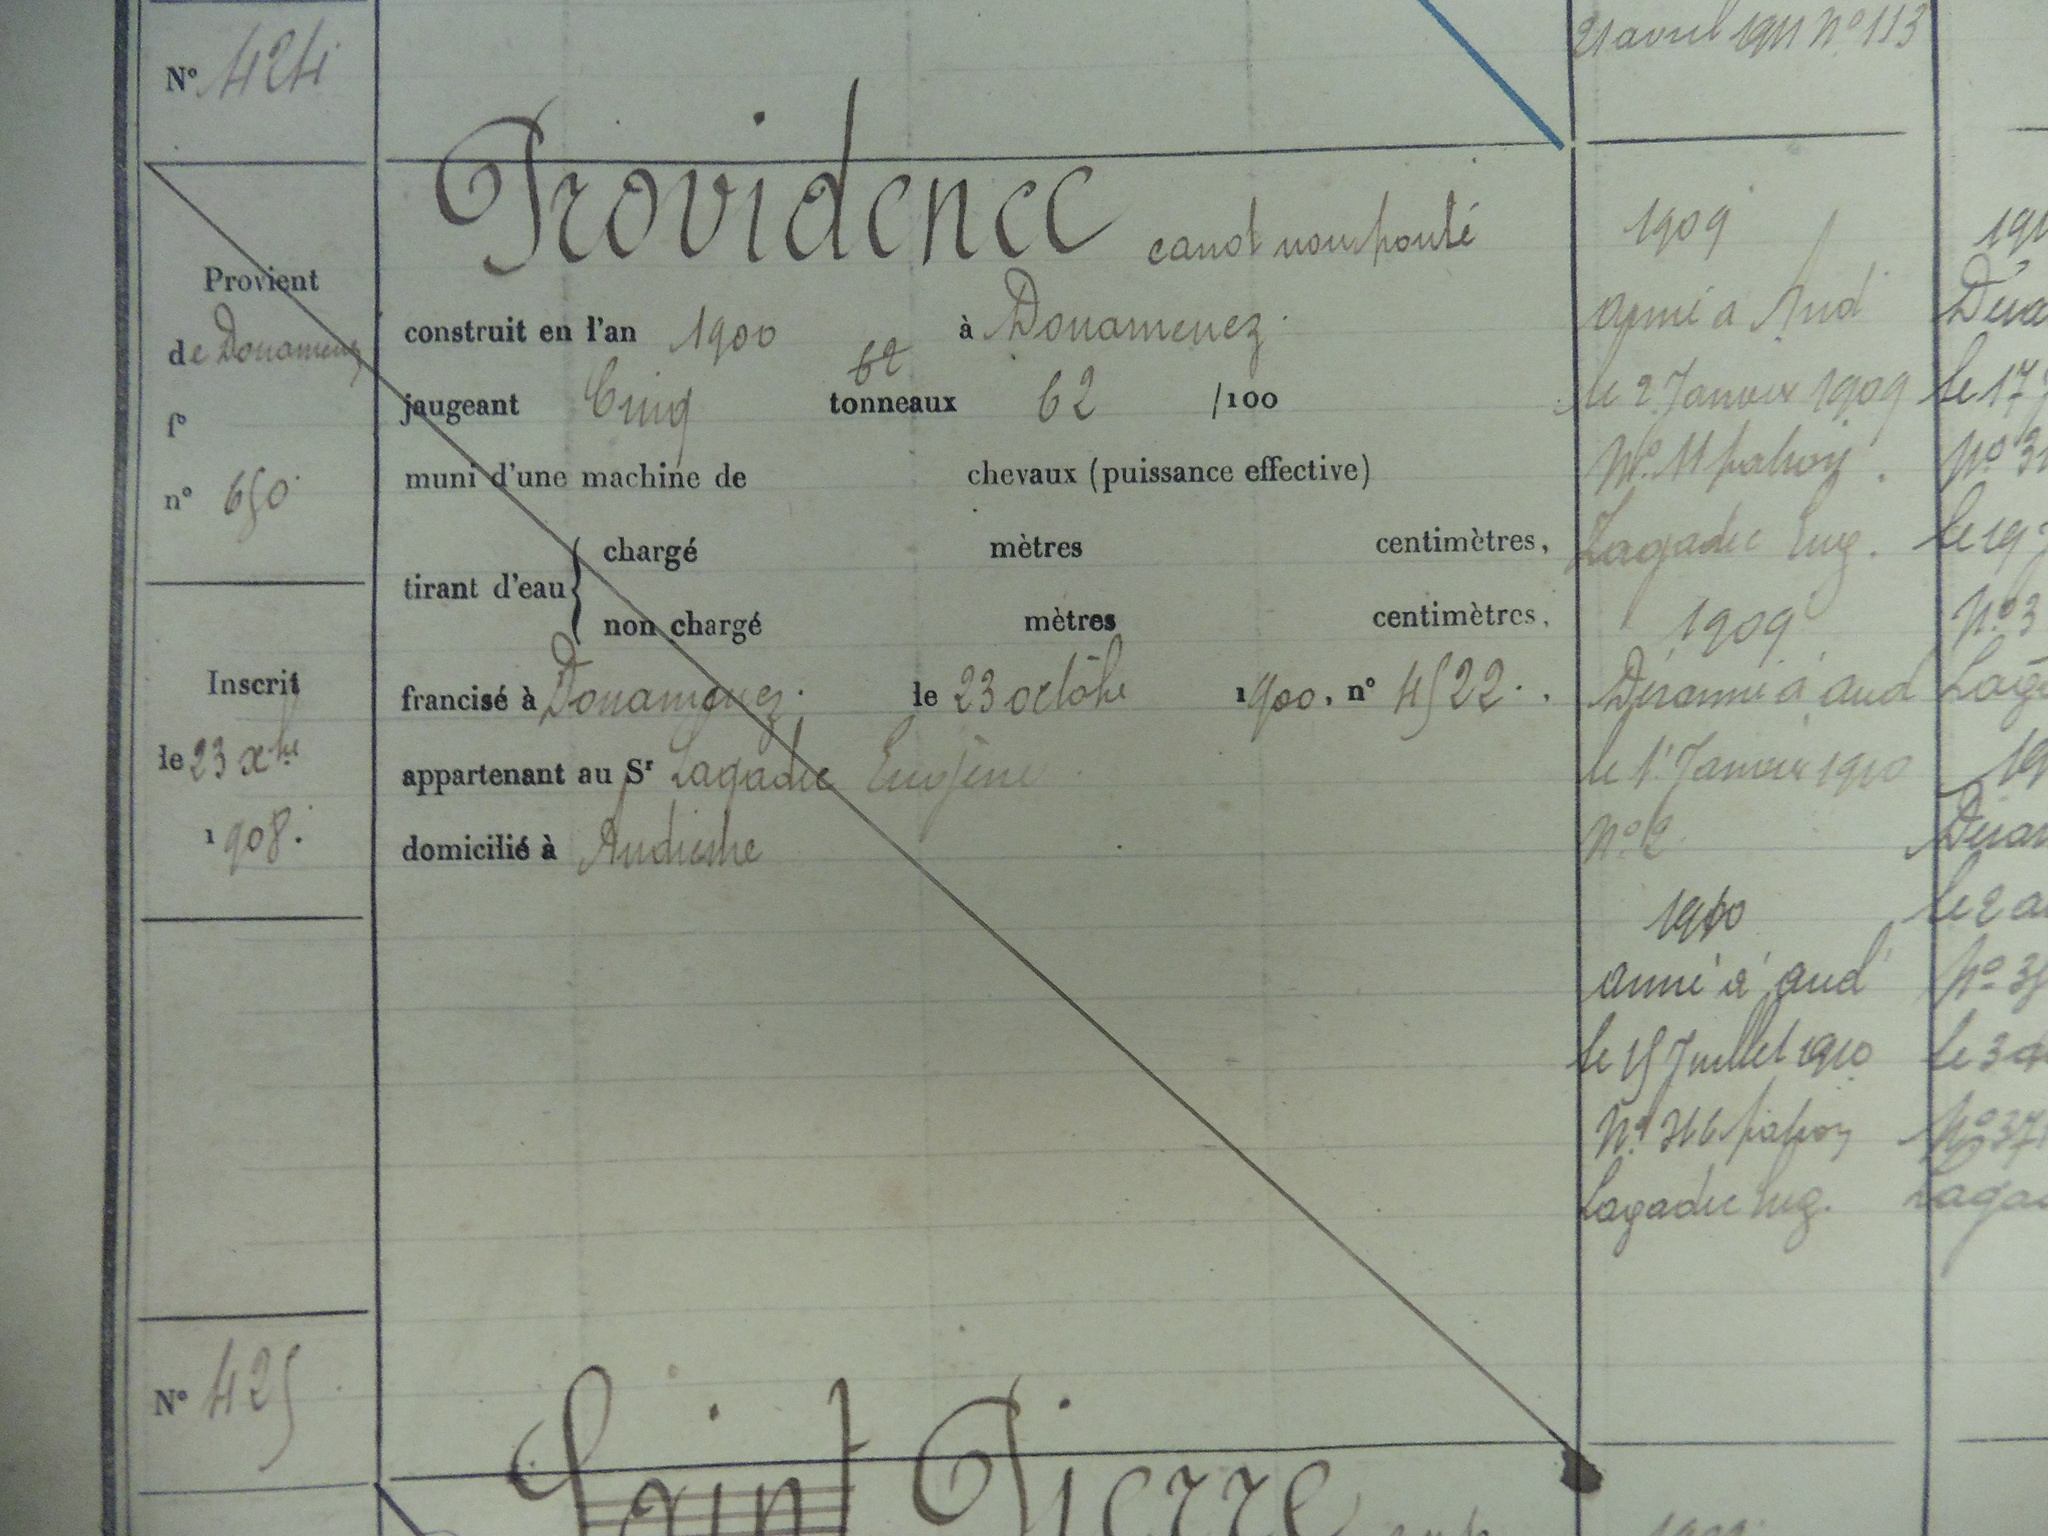 21 avril 1911 N° 113
N° 424
Providence canot non ponté
Provient
de Douarnenez
f°
n° 650
construit en l'an 1900 à Douarnenez
62
jaugeant Cinq tonneaux 62 /100
muni d'une machine de chevaux (puissance effective)
tirant d'eau { chargé mètres centimètres,
non chargé mètres centimètres,
Inscrit
le 23 xbre
1908.
francisé à Douarnenez. le 23 octobre 1900, n° 4522.
appartenant au Sr Lagadic Eugène
domicilié à Audierne
1909
armé à Aud
le 2 Janvier 1909
N° 11 patron
Lagadic Eug.
1909
Désarmé à aud
le 1er Janvier 1910
N° 2
1910
armé à aud
le 15 Juillet 1910
N° 316 patron
Lagadic Eug.
191
Désa
le 17 J
N° 31
le 19 J
N° 3
Laga
19
Désar
le 2 a
N° 35
le 3
N° 371
Lagad
N° 425
Saint Pierre